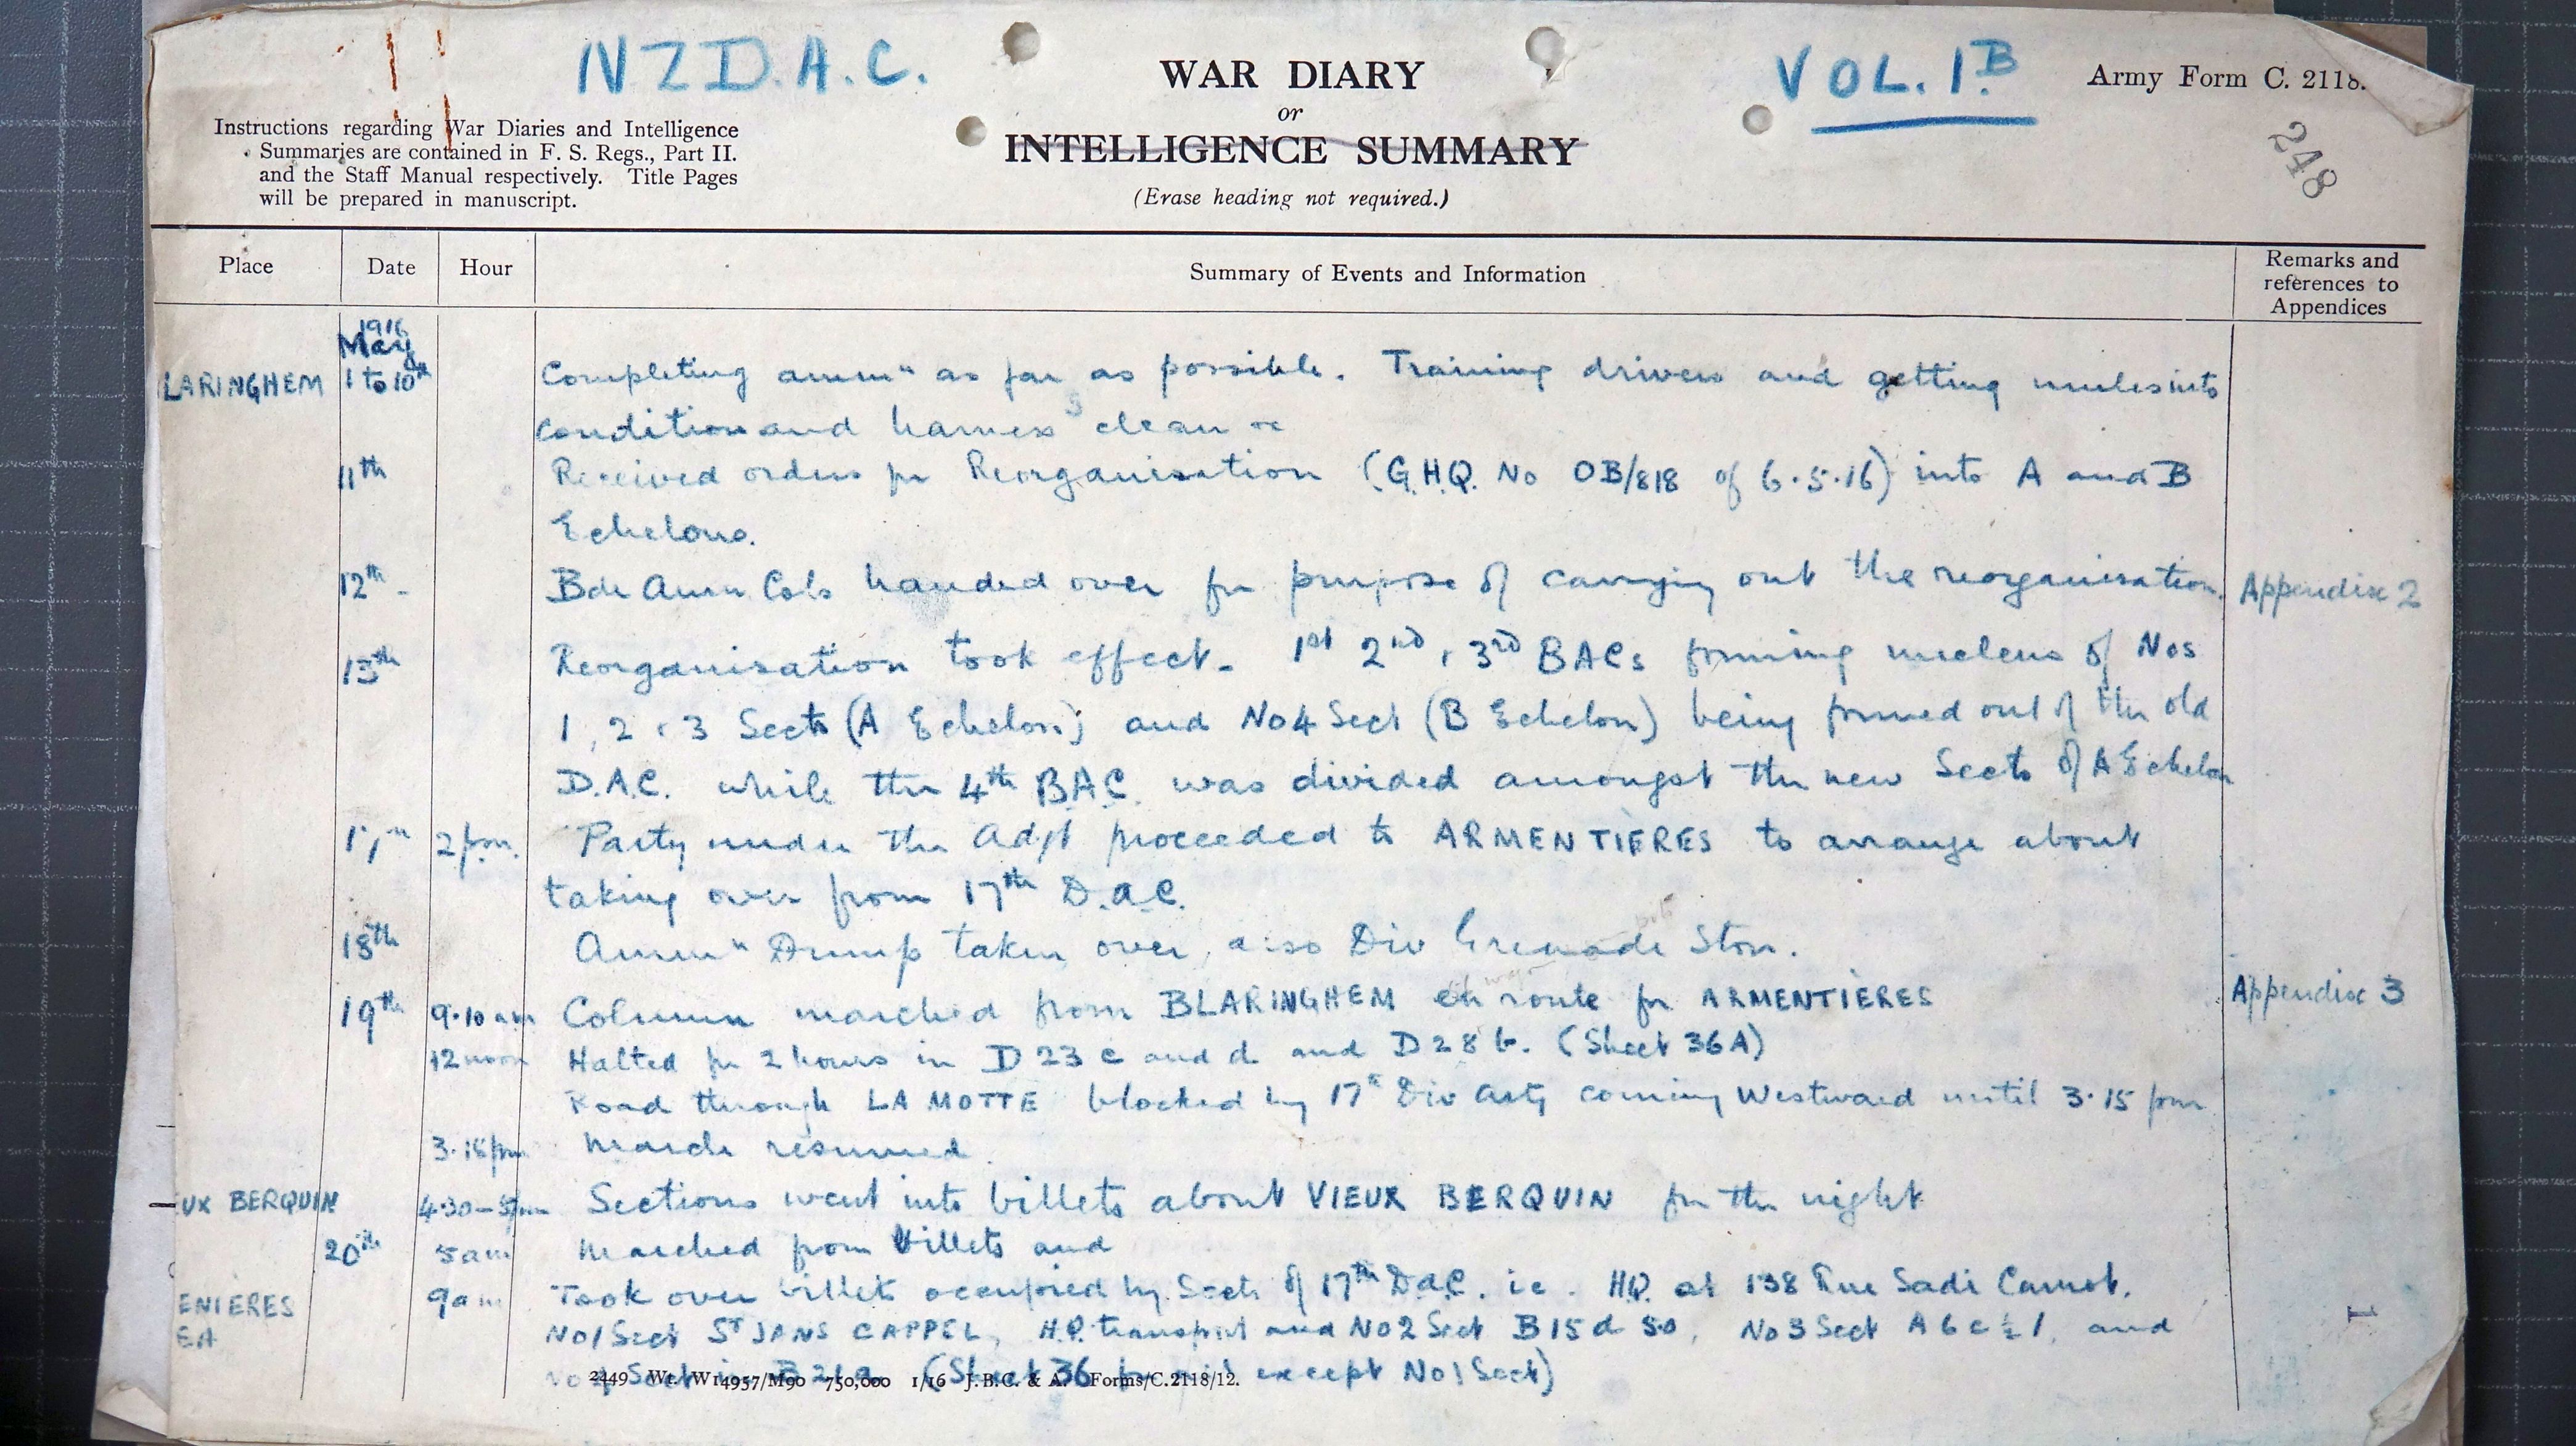 NZD.A.C.
WAR DIARY
or
INTELLIGENCE SUMMARY
(Erase heading not required.)
VOL. 1.B
Army Form C. 2118.
248
Instructions regarding War Diaries and Intelligence
Summaries are contained in F. S. Regs., Part II.
and the Staff Manual respectively. Title Pages
will be prepared in manuscript.
Place Date Hour Summary of Events and Information Remarks and references to Appendices
1916
May
LARINGHEM 1 to 10th Completing ammn as far as possible. Training drivers and getting mules into
condition and harness clean
11th Received orders for Reorganisation (G.H.Q. No OB/818 of 6.5.16) into A and B
Echelons.
12th - Bde Ammn Cols handed over for purpose of carrying out the reorganisation. Appendix 2
13th Reorganisation took effect - 1st 2nd, 3rd BACs forming nucleus of Nos
1, 2 & 3 Sects (A Echelon) and No 4 Sect (B Echelon) being formed out of the old
D.A.C. while the 4th B.A.C. was divided amongst the new Sects of A Echelon
17th 2 pm. Party under the Adjt proceeded to ARMENTIERES to arrange about
taking over from 17th D.A.C.
18th Ammn Dump taken over, also Div Grenade Store.
19th 9.10 am Column marched from BLARINGHEM en route for ARMENTIERES Appendix 3
12 noon Halted for 2 hours in D 23 c and d and D 28 b. (Sheet 36A)
Road through LA MOTTE blocked by 17th Div Arty coming Westward until 3.15 pm
3.15 pm March resumed.
UX BERQUIN 4.30 - 5 pm Sections went into billets about VIEUX BERQUIN for the night
20th 5 am Marched from billets and
ENIERES 9 am Took over billets occupied by Sects of 17th D.A.C. ie. HQ. at 138 Rue Sadi Carnot.
EA No 1 Sect ST JANS CAPPEL, H.Q. transport and No 2 Sect B 15 d 50, No 3 Sect A 6 c ½ 1, and
No 4 Sect in B (Sheet 36 except No 1 Sect)
2449 Wt. W14957/M90 750,000 1/16 J.B.C. & A. Forms/C.2118/12.
1